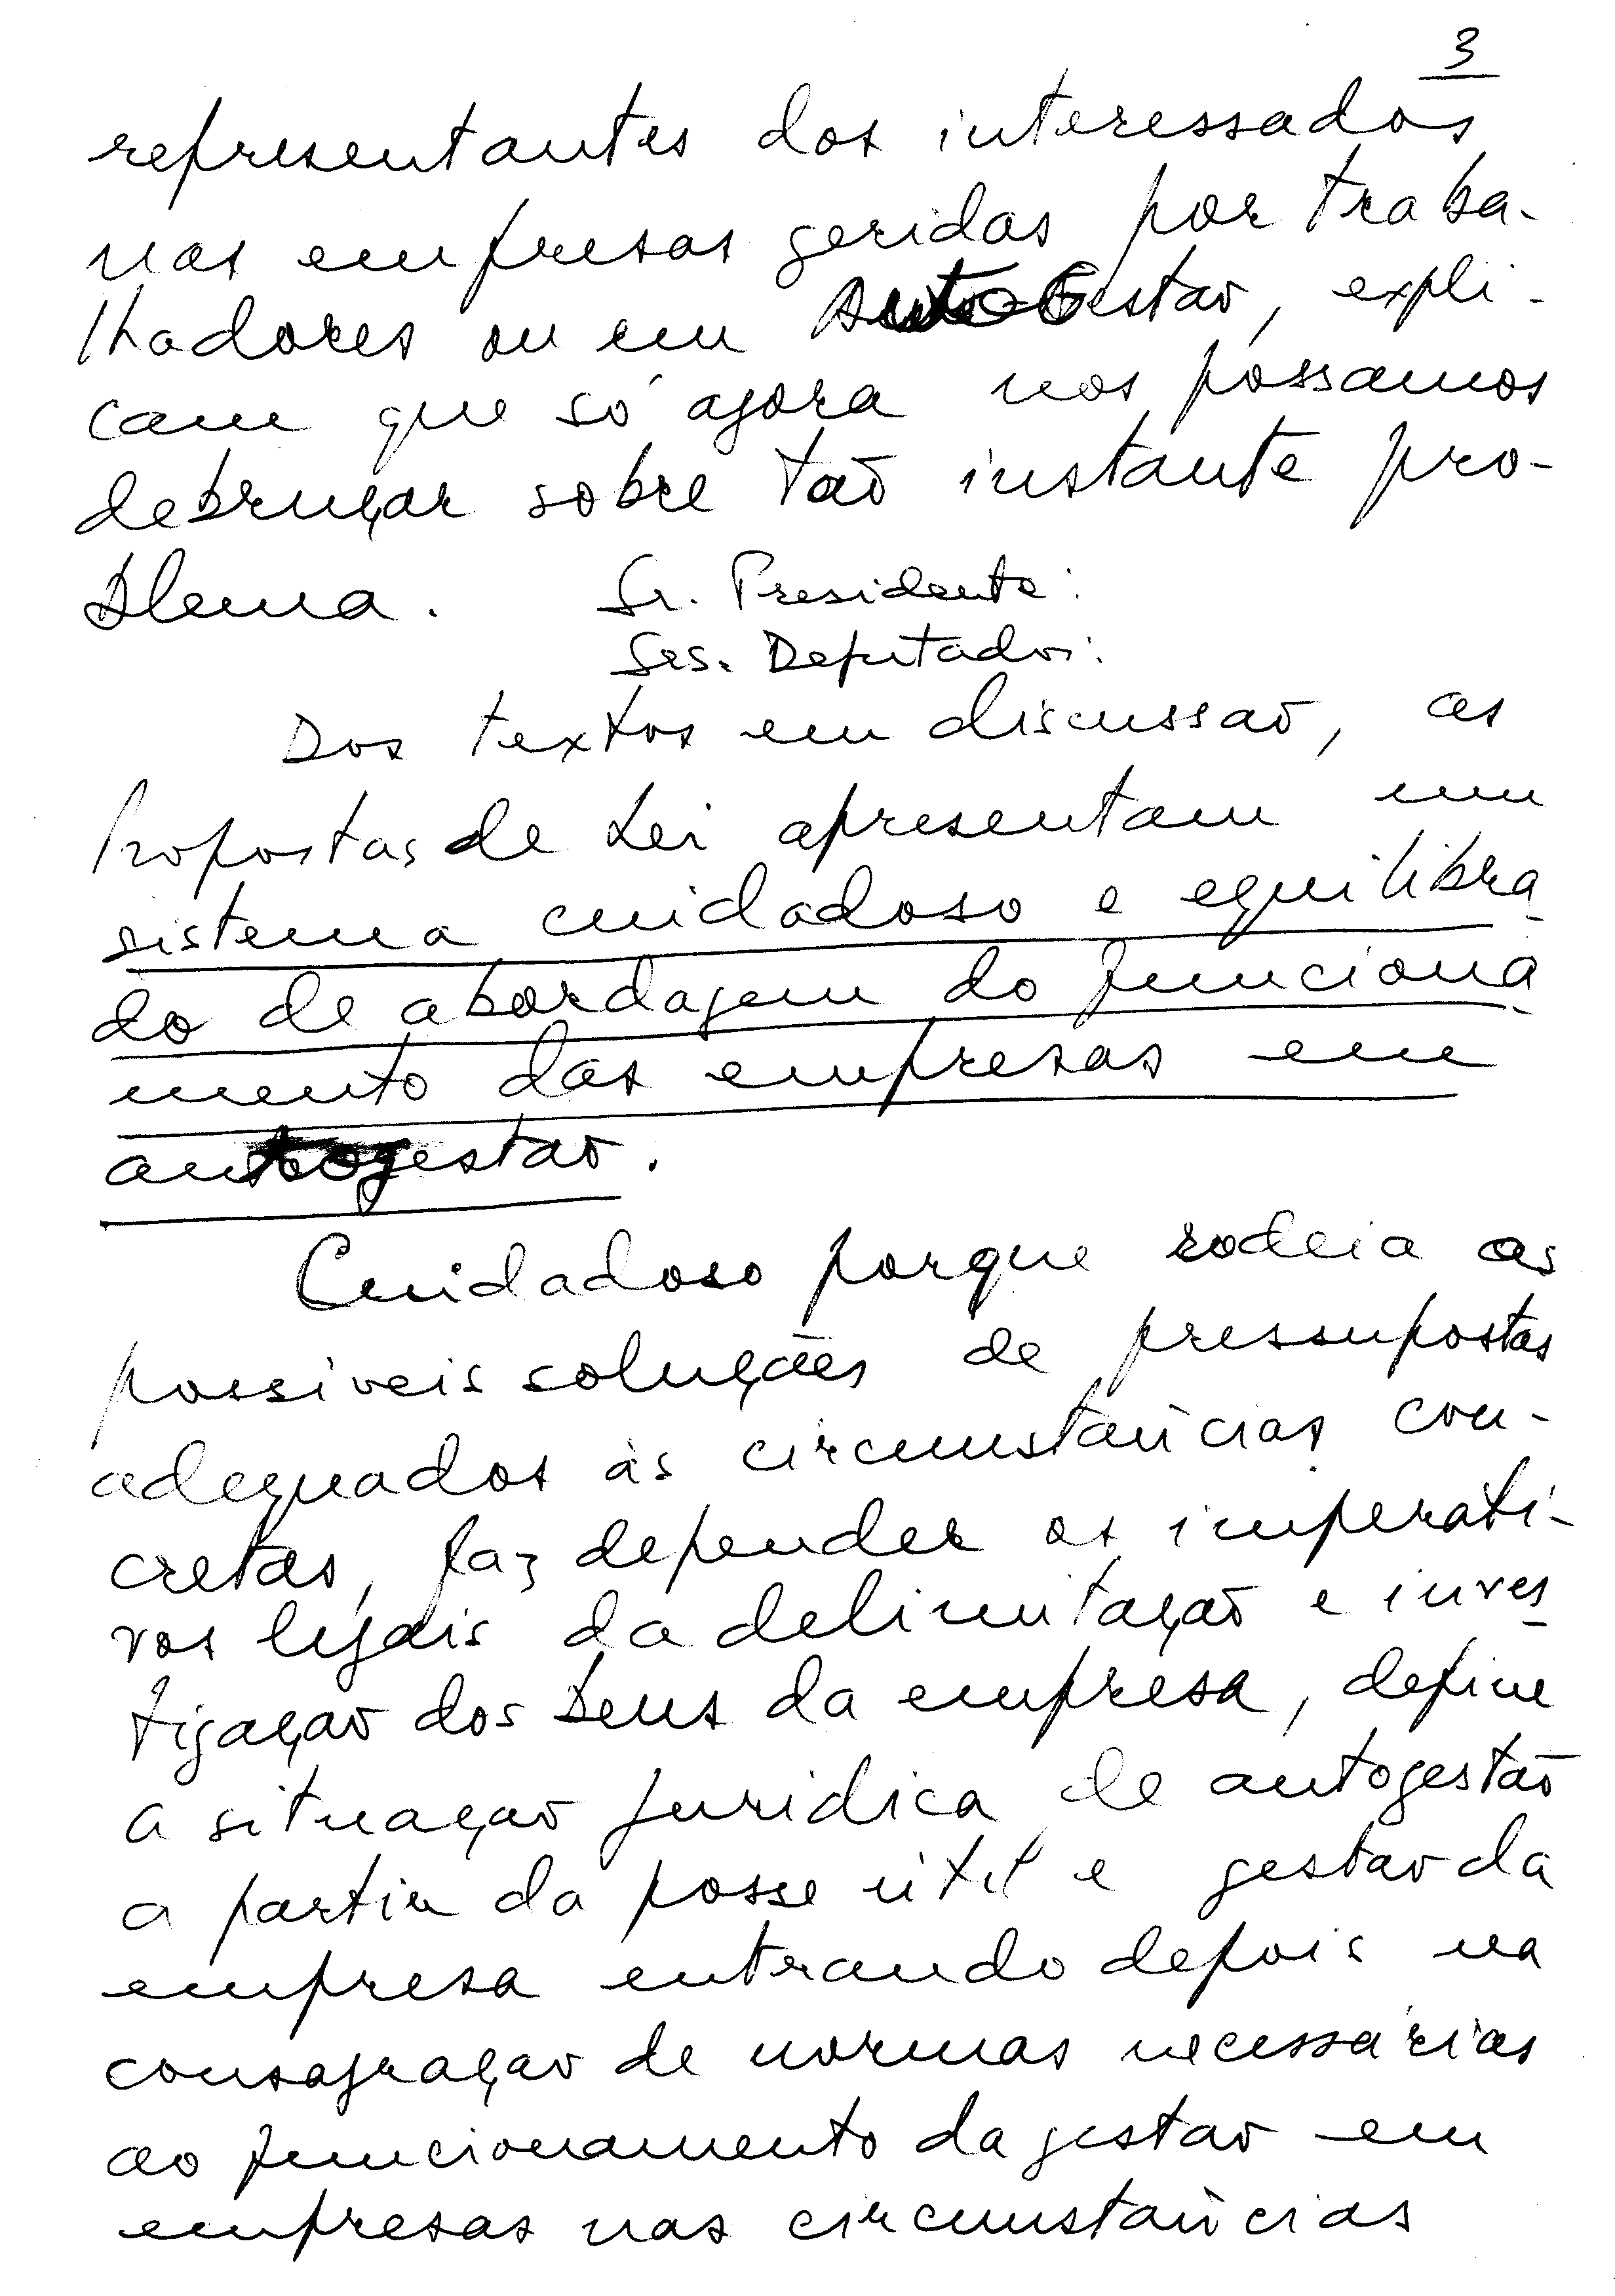 3
representantes dos interessados
nas empresas geridas por traba-
lhadores ou em AutoGestão, expli-
cam que só agora nos possamos
debruçar sobre tão instante pro-
blema.
Sr. Presidente:
Srs. Deputados:
Dos textos em discussão, as
Propostas de Lei apresentam um
sistema cuidadoso e equilibra-
do de abordagem do funciona-
mento das empresas em
autogestão.
Cuidadoso porque rodeia as
possíveis soluções de pressupostos
adequados às circunstâncias con-
cretas, faz depender os imperati-
vos legais da delimitação e inves-
tigação dos bens da empresa, define
a situação jurídica de autogestão
a partir da posse útil e gestão da
empresa entrando depois na
consagração de normas necessárias
ao funcionamento da gestão em
empresas nas circunstâncias